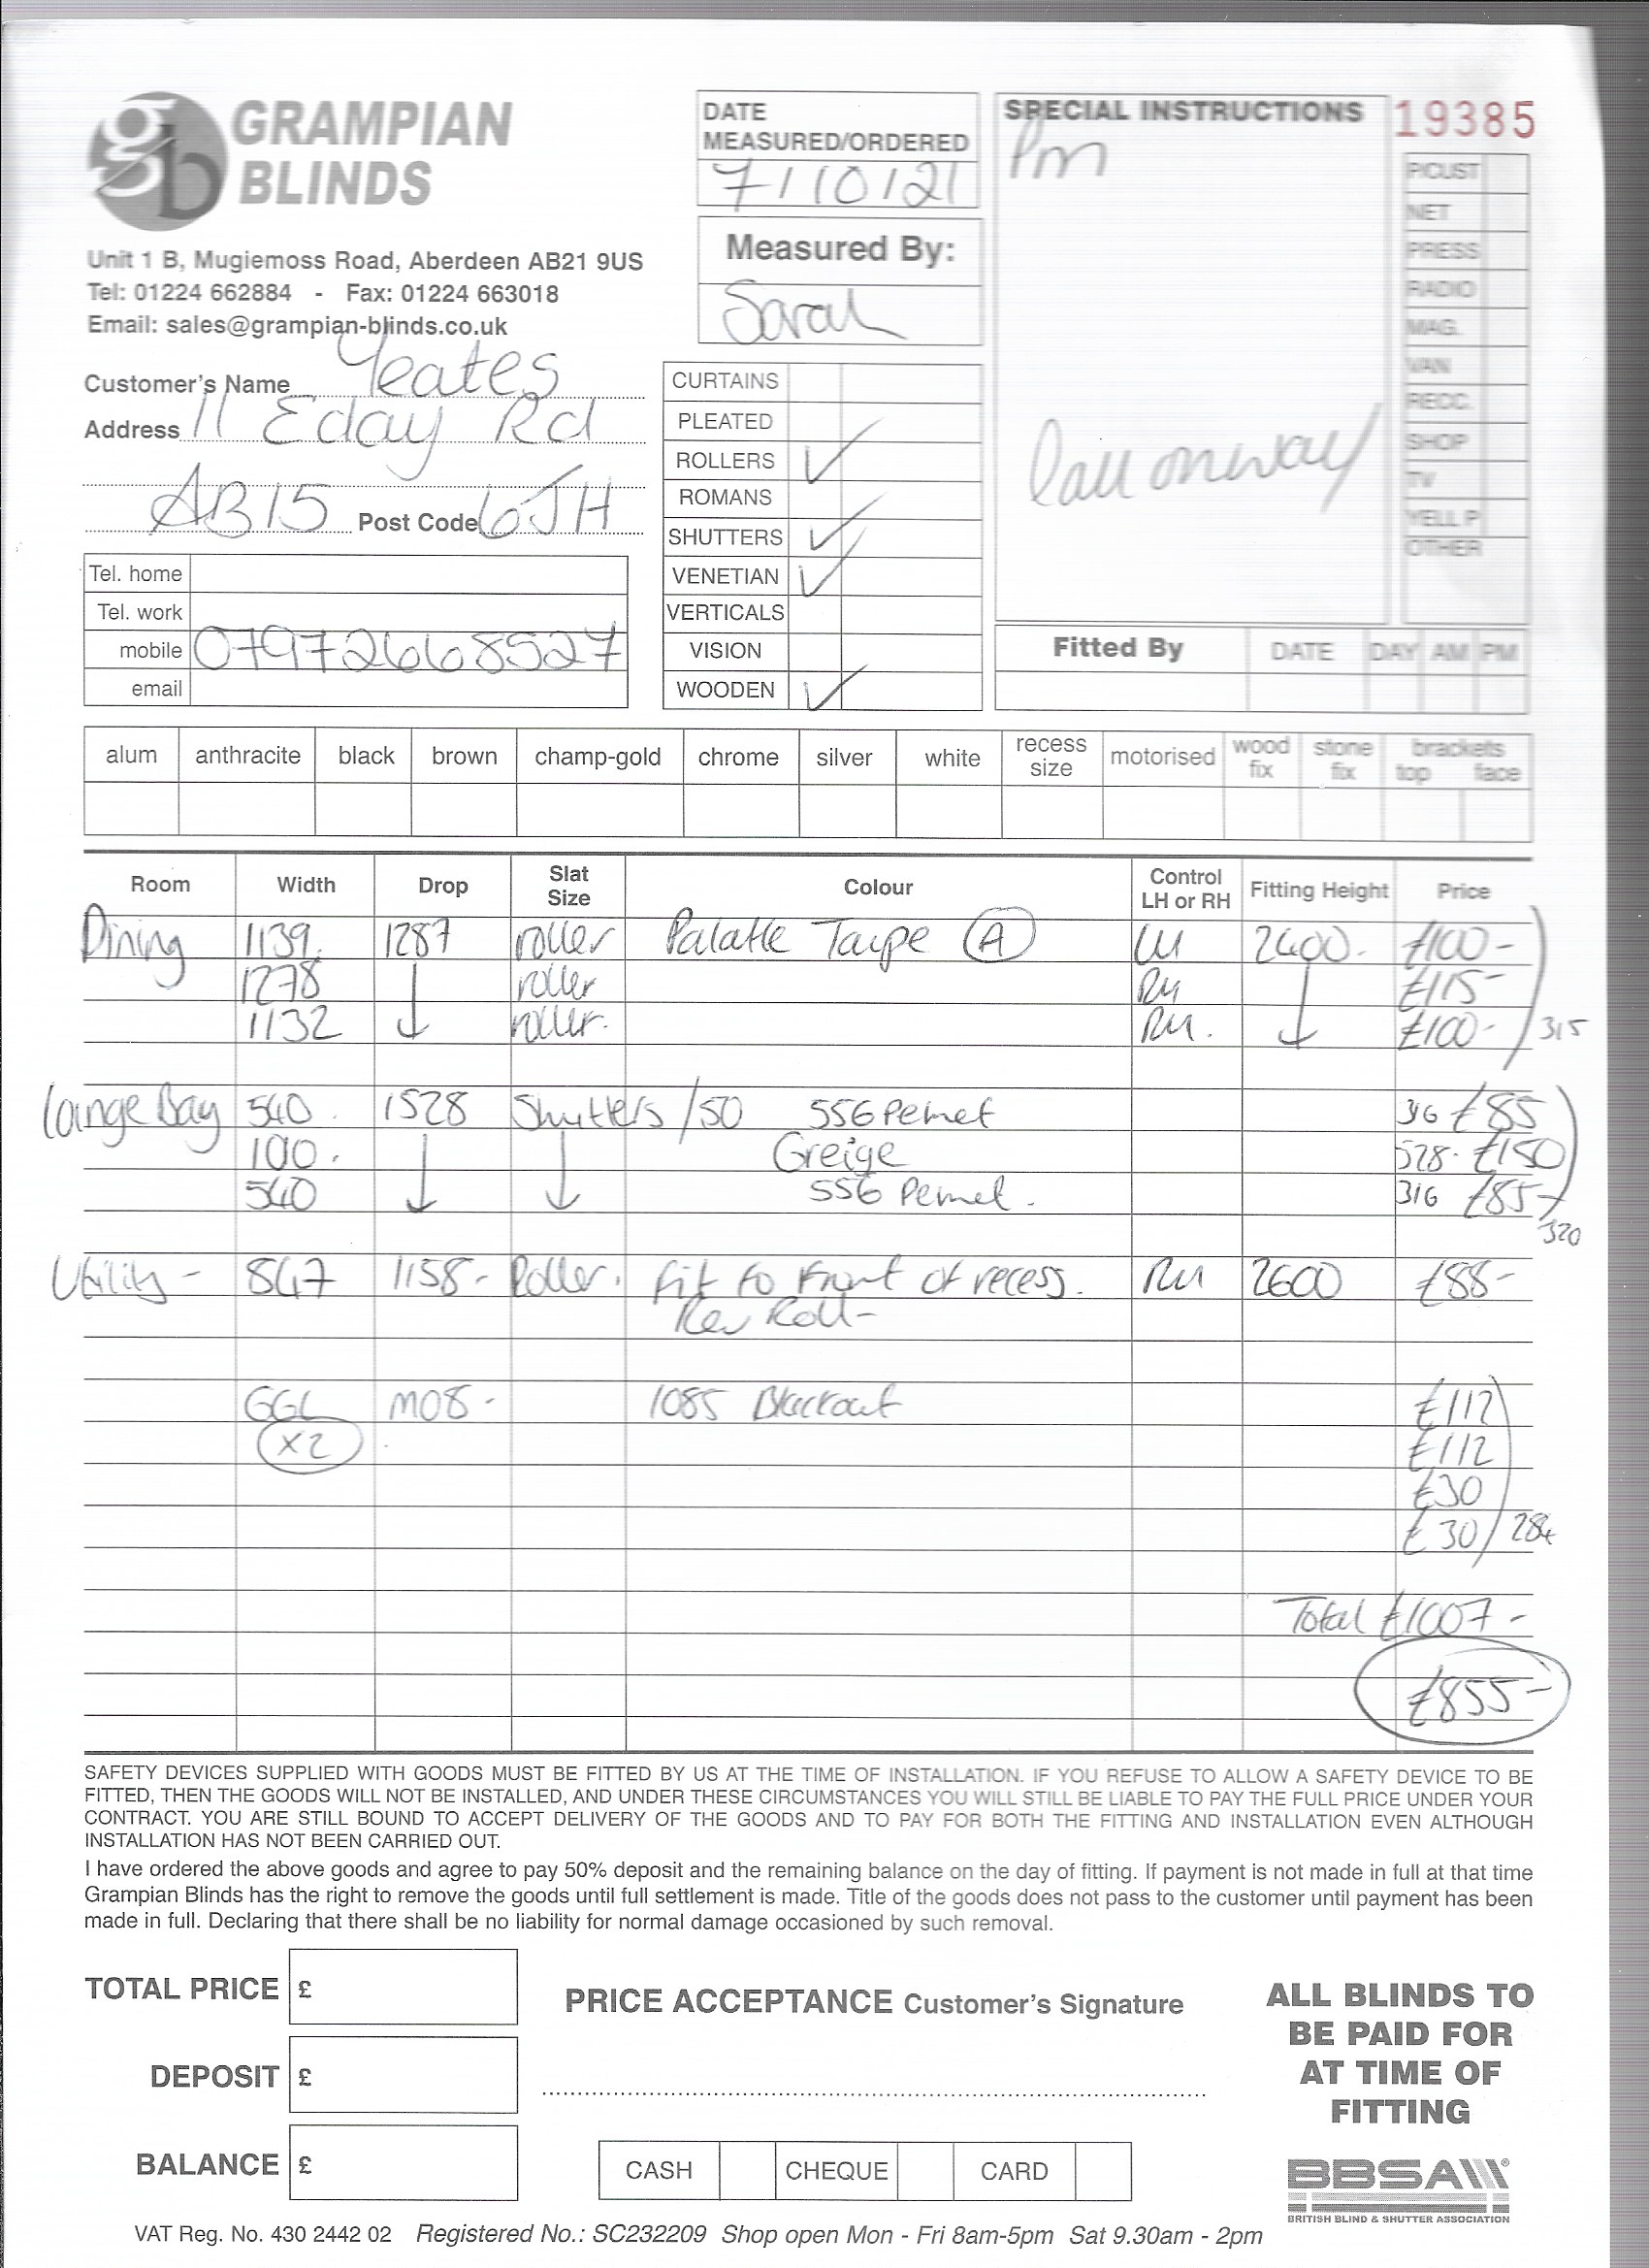 GRAMPIAN
BLINDS
Unit 1 B, Mugiemoss Road, Aberdeen AB21 9US
Tel: 01224 662884 - Fax: 01224 663018
Email: sales@grampian-blinds.co.uk
DATE
MEASURED/ORDERED
7/10/21
Measured By:
Sarah
SPECIAL INSTRUCTIONS
Pm
Call on way
19385
P/CUST
NET
PRESS
RADIO
MAG.
VAN
RECC.
SHOP
TV
YELL P
OTHER
Customer's Name Yeates
Address 11 Eday Rd
AB15 Post Code 6JH
Tel. home
Tel. work
mobile 07972668527
email
CURTAINS
PLEATED
ROLLERS ✓
ROMANS
SHUTTERS ✓
VENETIAN ✓
VERTICALS
VISION
WOODEN ✓
Fitted By DATE DAY AM PM
alum anthracite black brown champ-gold chrome silver white recess size motorised wood fix stone fix brackets top face
Room Width Drop Slat Size Colour Control LH or RH Fitting Height Price
Dining 1139. 1287 roller Palatte Taupe (A) LH 2400. £100-
1278 roller RH £115-
1132 roller. RH. £100- 315
Lounge Bay 540. 1528 Shutters /50 556 Pernet 316 £85
100. Greige 528. £150
540 556 Pernet. 316 £85-
320
Utility - 847 1158- Roller. Fit to Front of recess. RH 2600 £88-
Rev Roll-
GGL M08- 1085 Blackout £112
x2 £112
£30
£30 284
Total £1007-
£855-
SAFETY DEVICES SUPPLIED WITH GOODS MUST BE FITTED BY US AT THE TIME OF INSTALLATION. IF YOU REFUSE TO ALLOW A SAFETY DEVICE TO BE
FITTED, THEN THE GOODS WILL NOT BE INSTALLED, AND UNDER THESE CIRCUMSTANCES YOU WILL STILL BE LIABLE TO PAY THE FULL PRICE UNDER YOUR
CONTRACT. YOU ARE STILL BOUND TO ACCEPT DELIVERY OF THE GOODS AND TO PAY FOR BOTH THE FITTING AND INSTALLATION EVEN ALTHOUGH
INSTALLATION HAS NOT BEEN CARRIED OUT.
I have ordered the above goods and agree to pay 50% deposit and the remaining balance on the day of fitting. If payment is not made in full at that time
Grampian Blinds has the right to remove the goods until full settlement is made. Title of the goods does not pass to the customer until payment has been
made in full. Declaring that there shall be no liability for normal damage occasioned by such removal.
TOTAL PRICE £
DEPOSIT £
BALANCE £
PRICE ACCEPTANCE Customer's Signature
CASH CHEQUE CARD
ALL BLINDS TO
BE PAID FOR
AT TIME OF
FITTING
BBSA
BRITISH BLIND & SHUTTER ASSOCIATION
VAT Reg. No. 430 2442 02 Registered No.: SC232209 Shop open Mon - Fri 8am-5pm Sat 9.30am - 2pm